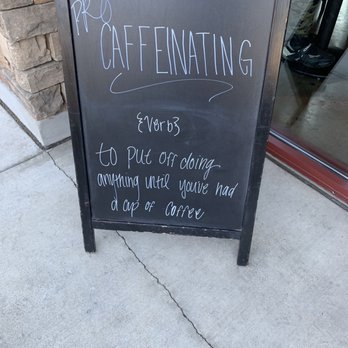 PRO
CAFFEINATING
{Verb}
to put off doing
anything until you've had
a cup of coffee